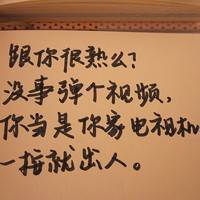 跟你很熱么?
没事弹个视频,
你当是你家电视机
一按就出人。